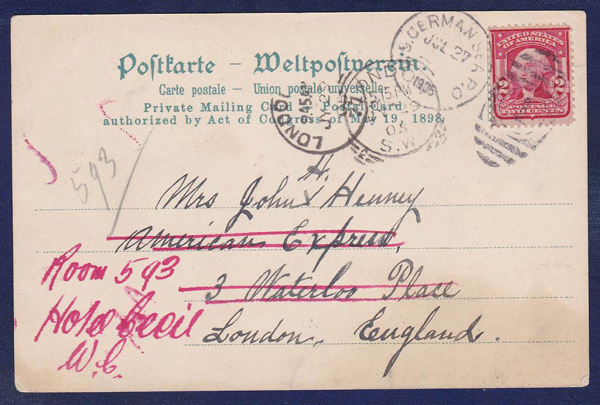 Postkarte – Weltpostverein.
Carte postale – Union postale universelle
Private Mailing Card – Postal Card
authorized by Act of Congress of May 19, 1898.
U.S. GERMAN SEA P.O.
JUL 27
1905
LONDON
S.W
05
LONDON
UNITED STATES
OF AMERICA
2 2
POSTAGE
TWO CENTS
593
H.
Mrs John Henney
American Express
3 Waterloo Place
London, England.
Room 593
Hotel Cecil
W.C.